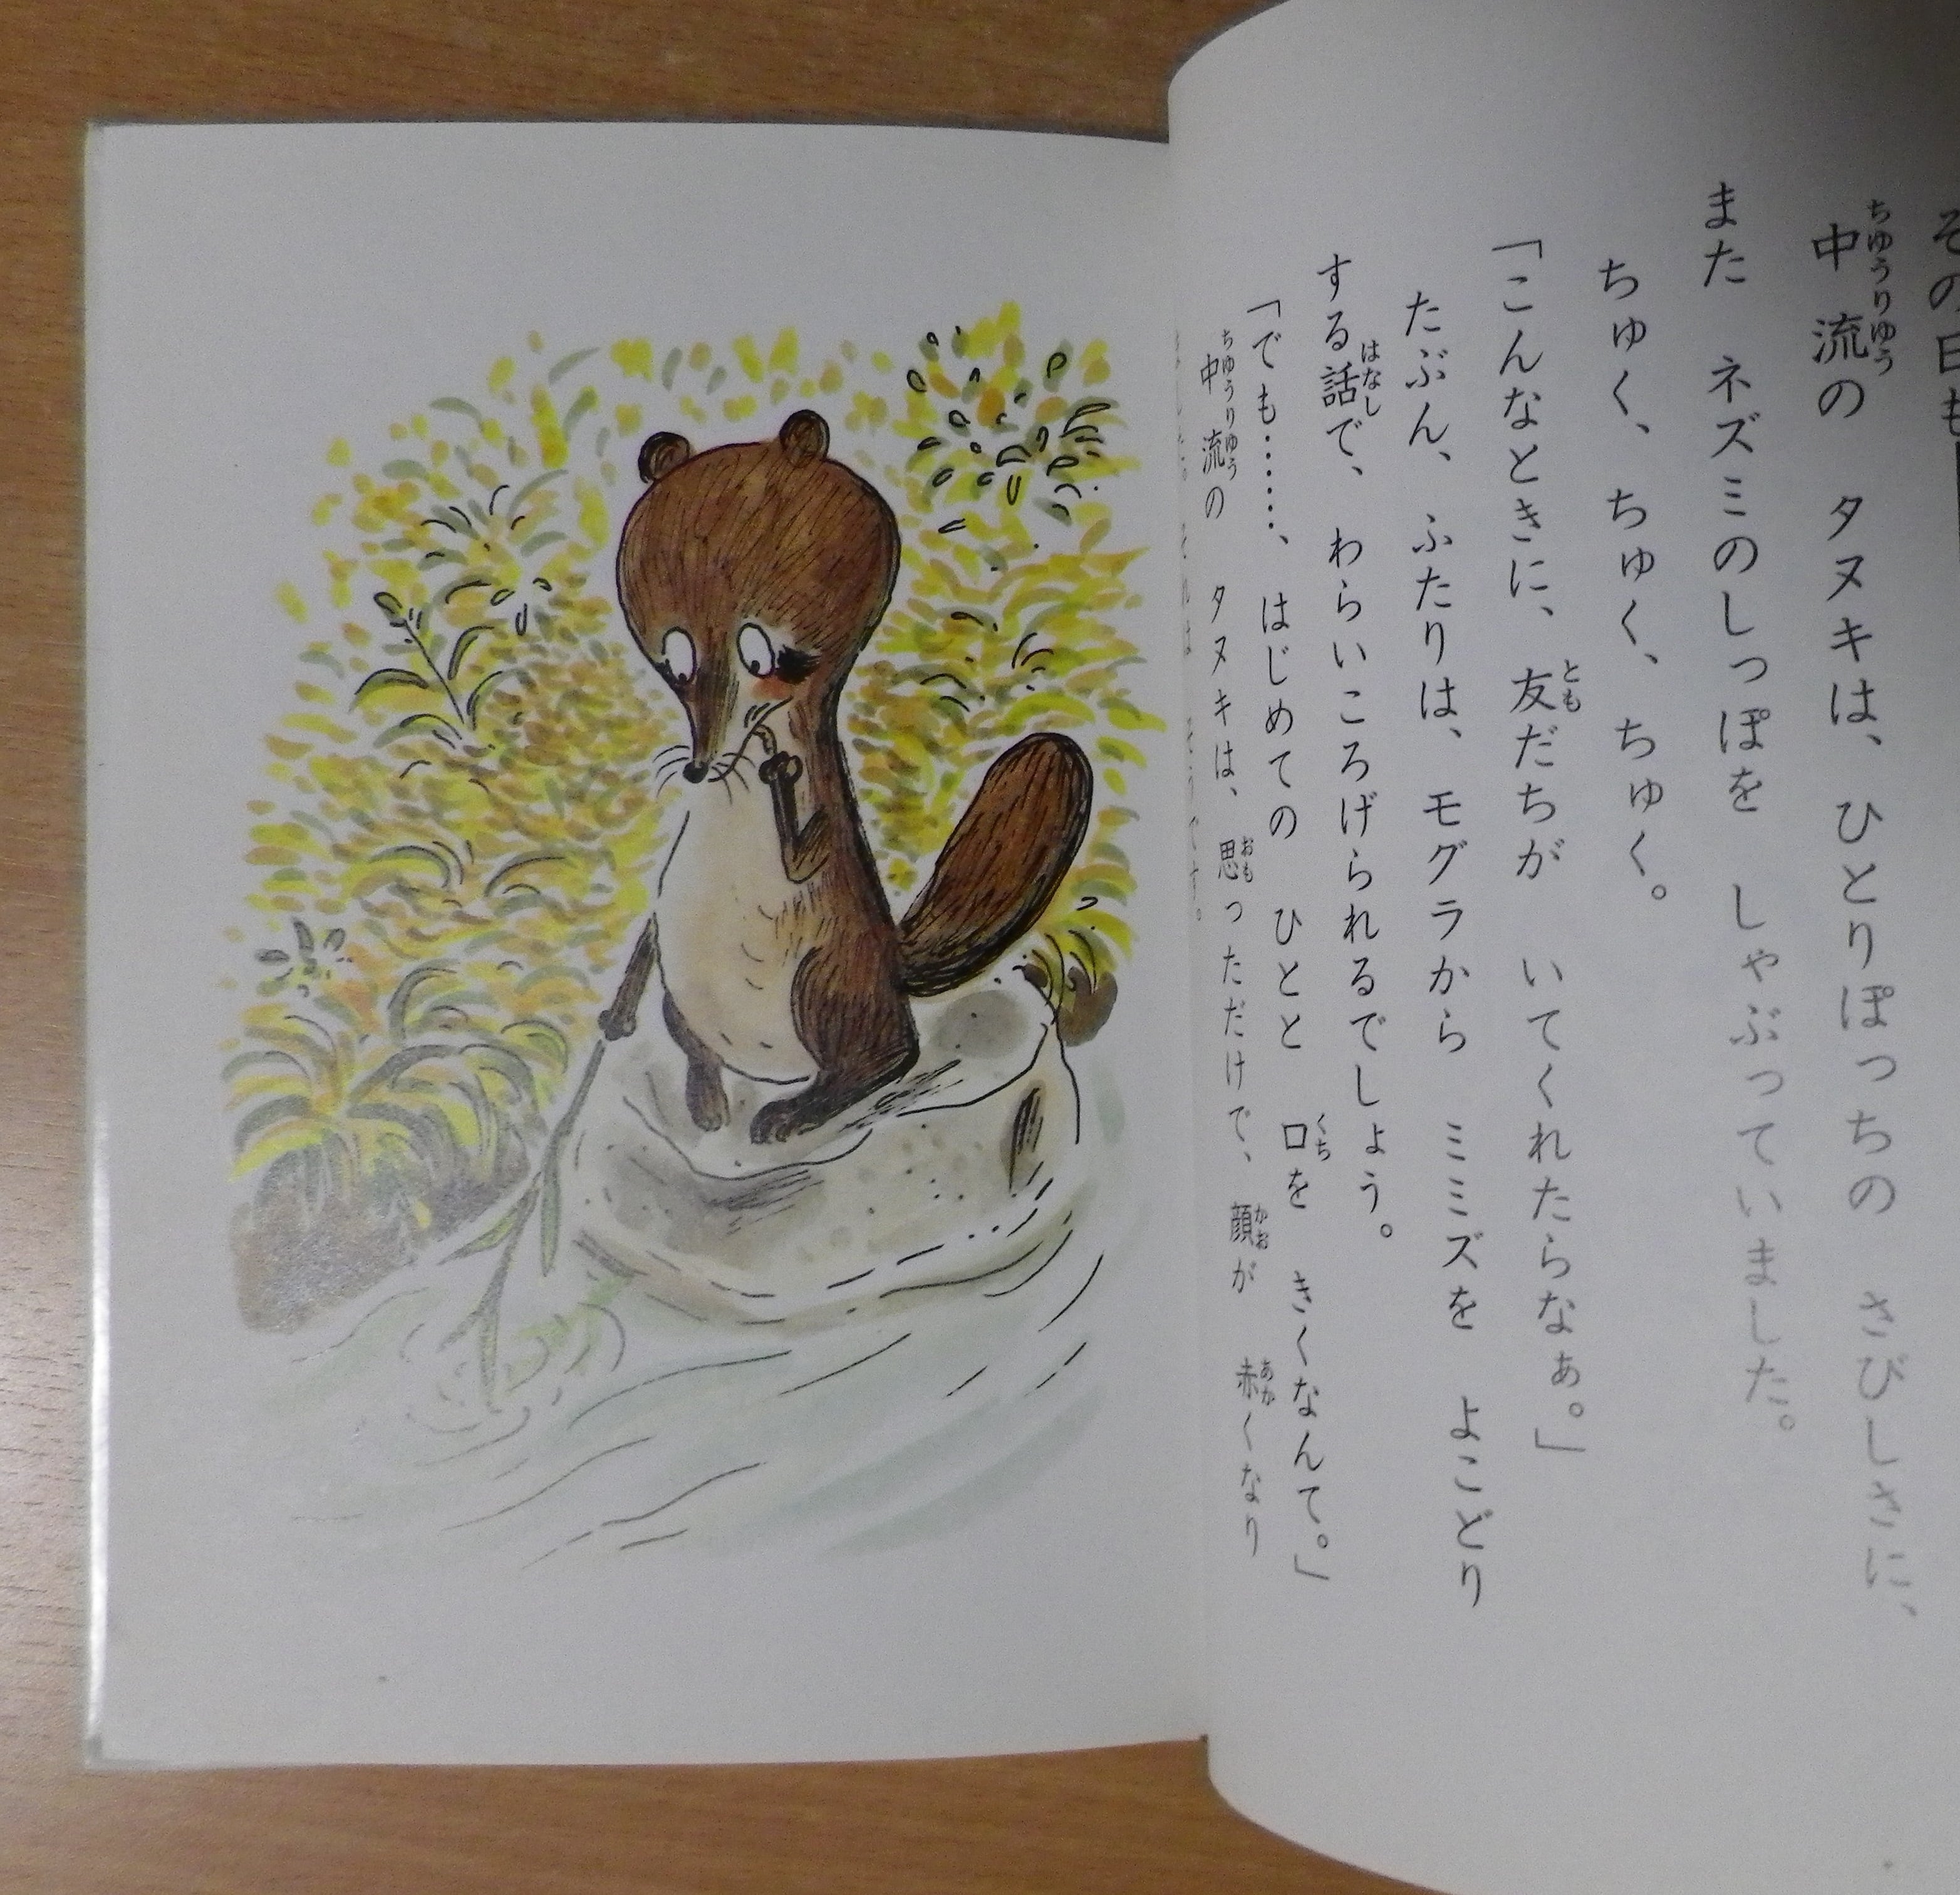 その日も
中流の タヌキは、ひとりぽっちの さびしさに、
また ネズミのしっぽを しゃぶっていました。
ちゅく、ちゅく、ちゅく。
「こんなときに、友だちが いてくれたらなぁ。」
たぶん、ふたりは、モグラから ミミズを よこどり
する話で、わらいころげられるでしょう。
「でも……、はじめての ひとと 口を きくなんて。」
中流の タヌキは、思っただけで、顔が 赤くなり